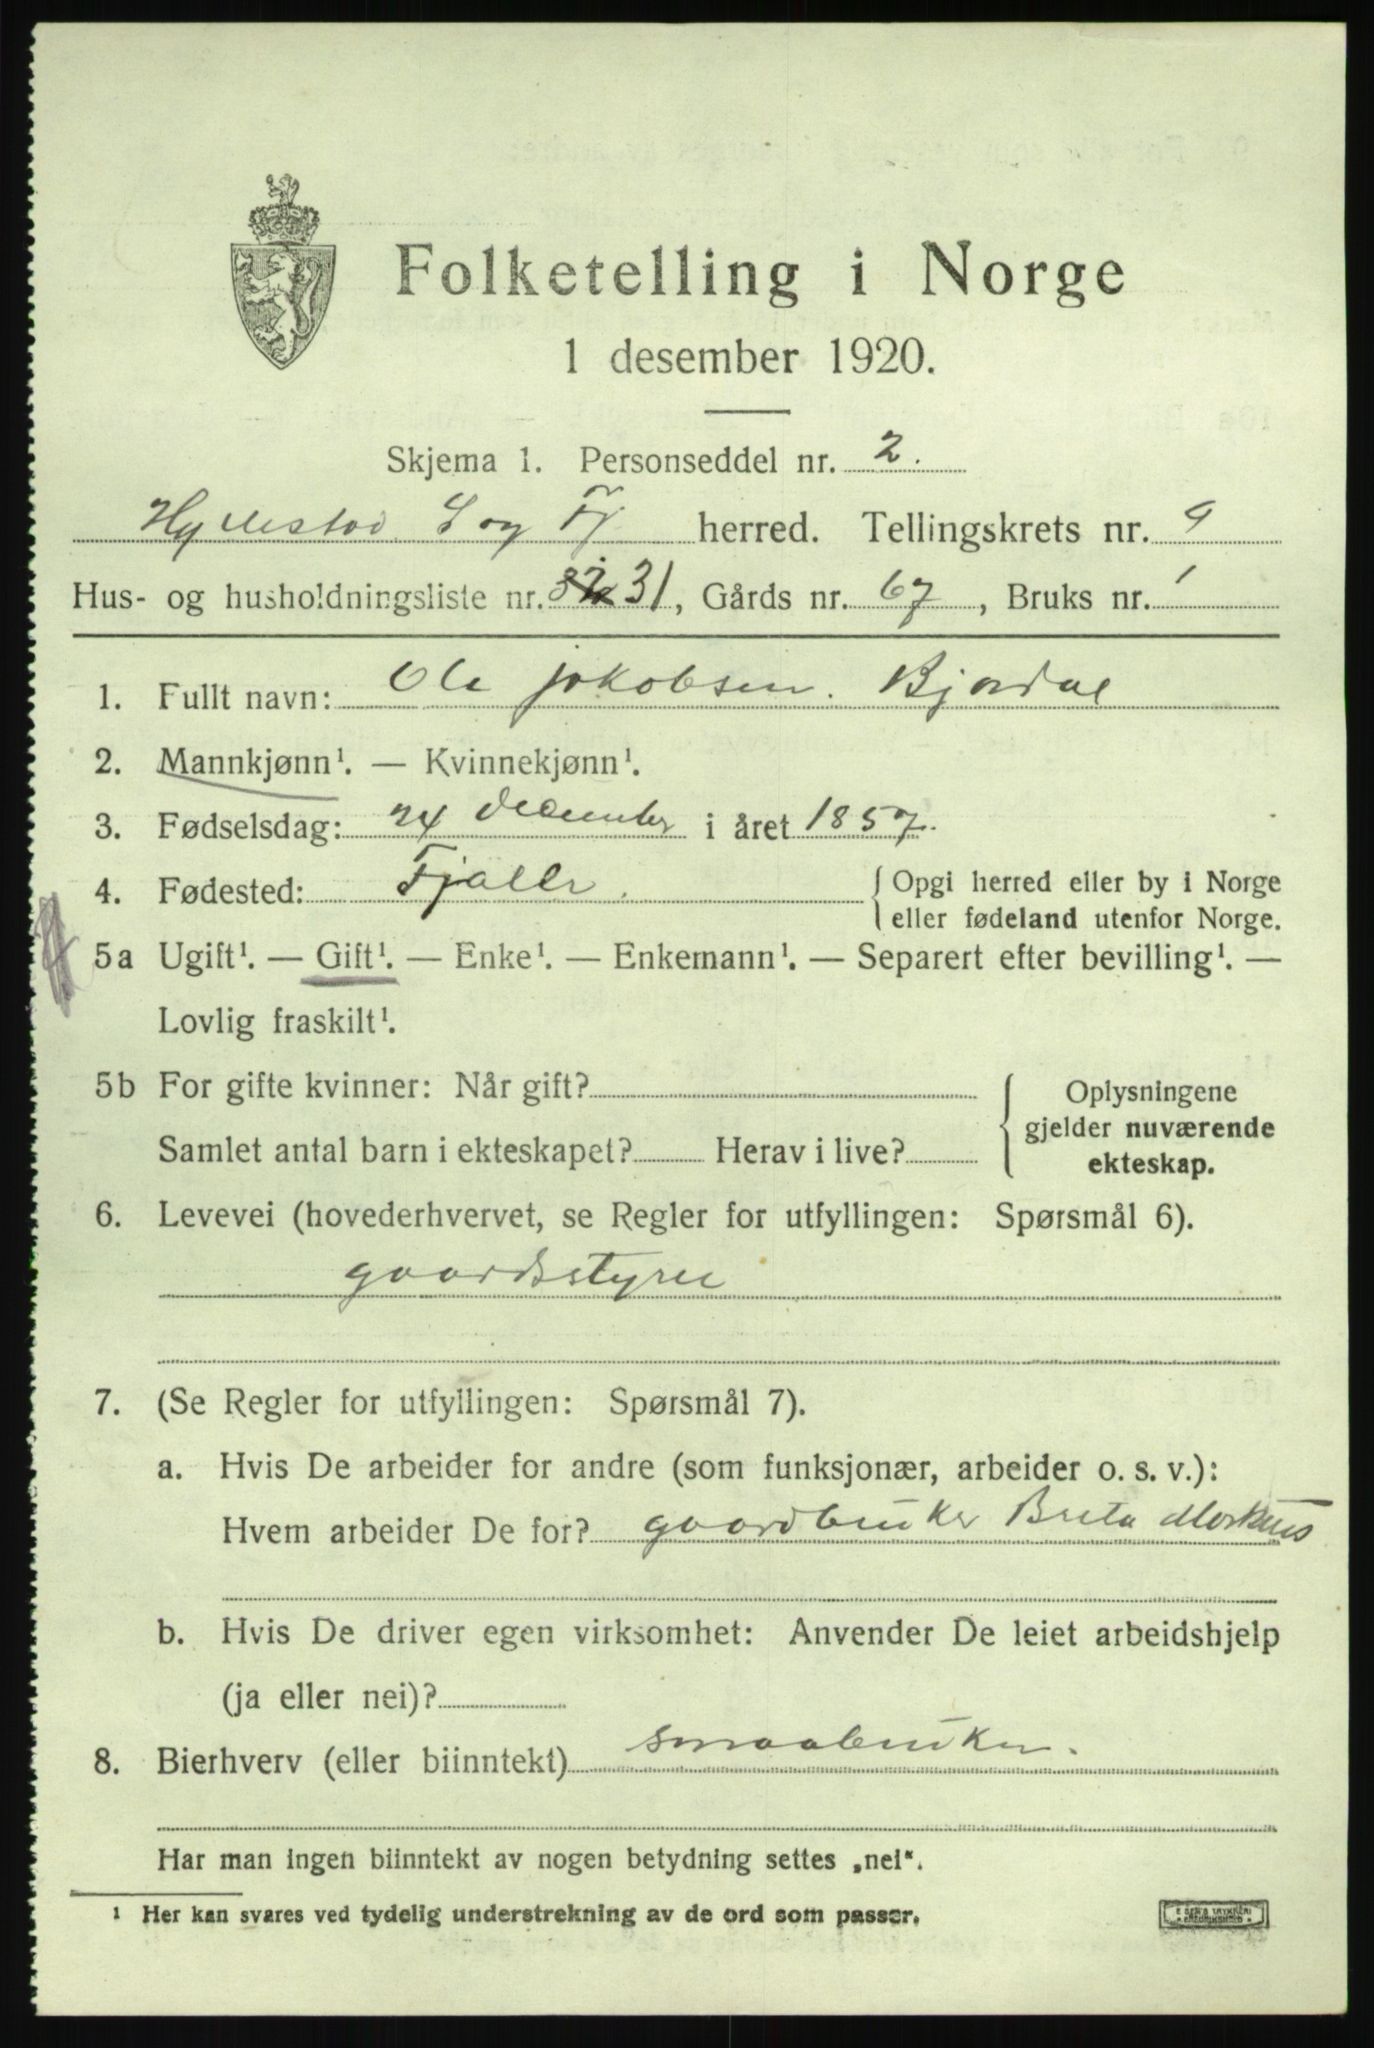 Folketelling i Norge
1 desember 1920.
Skjema 1. Personseddel nr. 2.
Hyllestad S og Fj herred. Tellingskrets nr. 9
Hus- og husholdningsliste nr. 31, Gårds nr. 67, Bruks nr. 1
1. Fullt navn: Ole jokobsen. Bjordal
2. Mannkjønn¹. — Kvinnekjønn¹.
3. Fødselsdag: 24 december i året 1857.
4. Fødested: Fjaler. Opgi herred eller by i Norge
eller fødeland utenfor Norge.
5a Ugift¹. — Gift¹. — Enke¹. — Enkemann¹. — Separert efter bevilling¹. —
Lovlig fraskilt¹.
5b For gifte kvinner: Når gift? Oplysningene
gjelder nuværende
Samlet antal barn i ekteskapet? Herav i live? ekteskap.
6. Levevei (hovederhvervet, se Regler for utfyllingen: Spørsmål 6).
gaardsstyrer
7. (Se Regler for utfyllingen: Spørsmål 7).
a. Hvis De arbeider for andre (som funksjonær, arbeider o. s. v.):
Hvem arbeider De for? gaardbruker Brita
b. Hvis De driver egen virksomhet: Anvender De leiet arbeidshjelp
(ja eller nei)?
8. Bierhverv (eller biinntekt) smaabruker.
Har man ingen biinntekt av nogen betydning settes „nei".
¹ Her kan svares ved tydelig understrekning av de ord som passer.